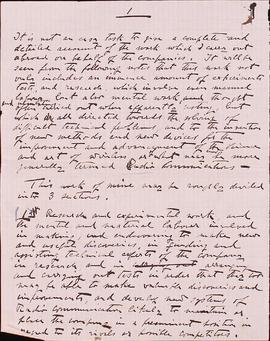 1
It is not an easy task to give a complete and
detailed account of the work which I carry out
abroad on behalf of the companies. It will be
seen from the following notes that this work not
only includes an immense amount of experiments
tests, and research, which involve even manual
labour, but also mental work and thought
which are all directed towards the solving of
difficult technical problems, and to the invention
of new methods and new devices for the
improvement and advancement of the science
and art of wireless or what may be more
generally termed Radio Communications —
This work of mine may be roughly divided
into 3 sections.
1st Research and experimental work and
the mental and material labour involved
in making, and endeavouring to make, new
and useful discoveries, in guiding and
assisting technical experts of the company
in research and in arranging
and carrying out tests in order that they too
may be able to make valuable discoveries and
improvements, and develop new systems of
Radio Communication likely to maintain or
place the company in a preeminent position in
regard to its rivals or possible competitors.